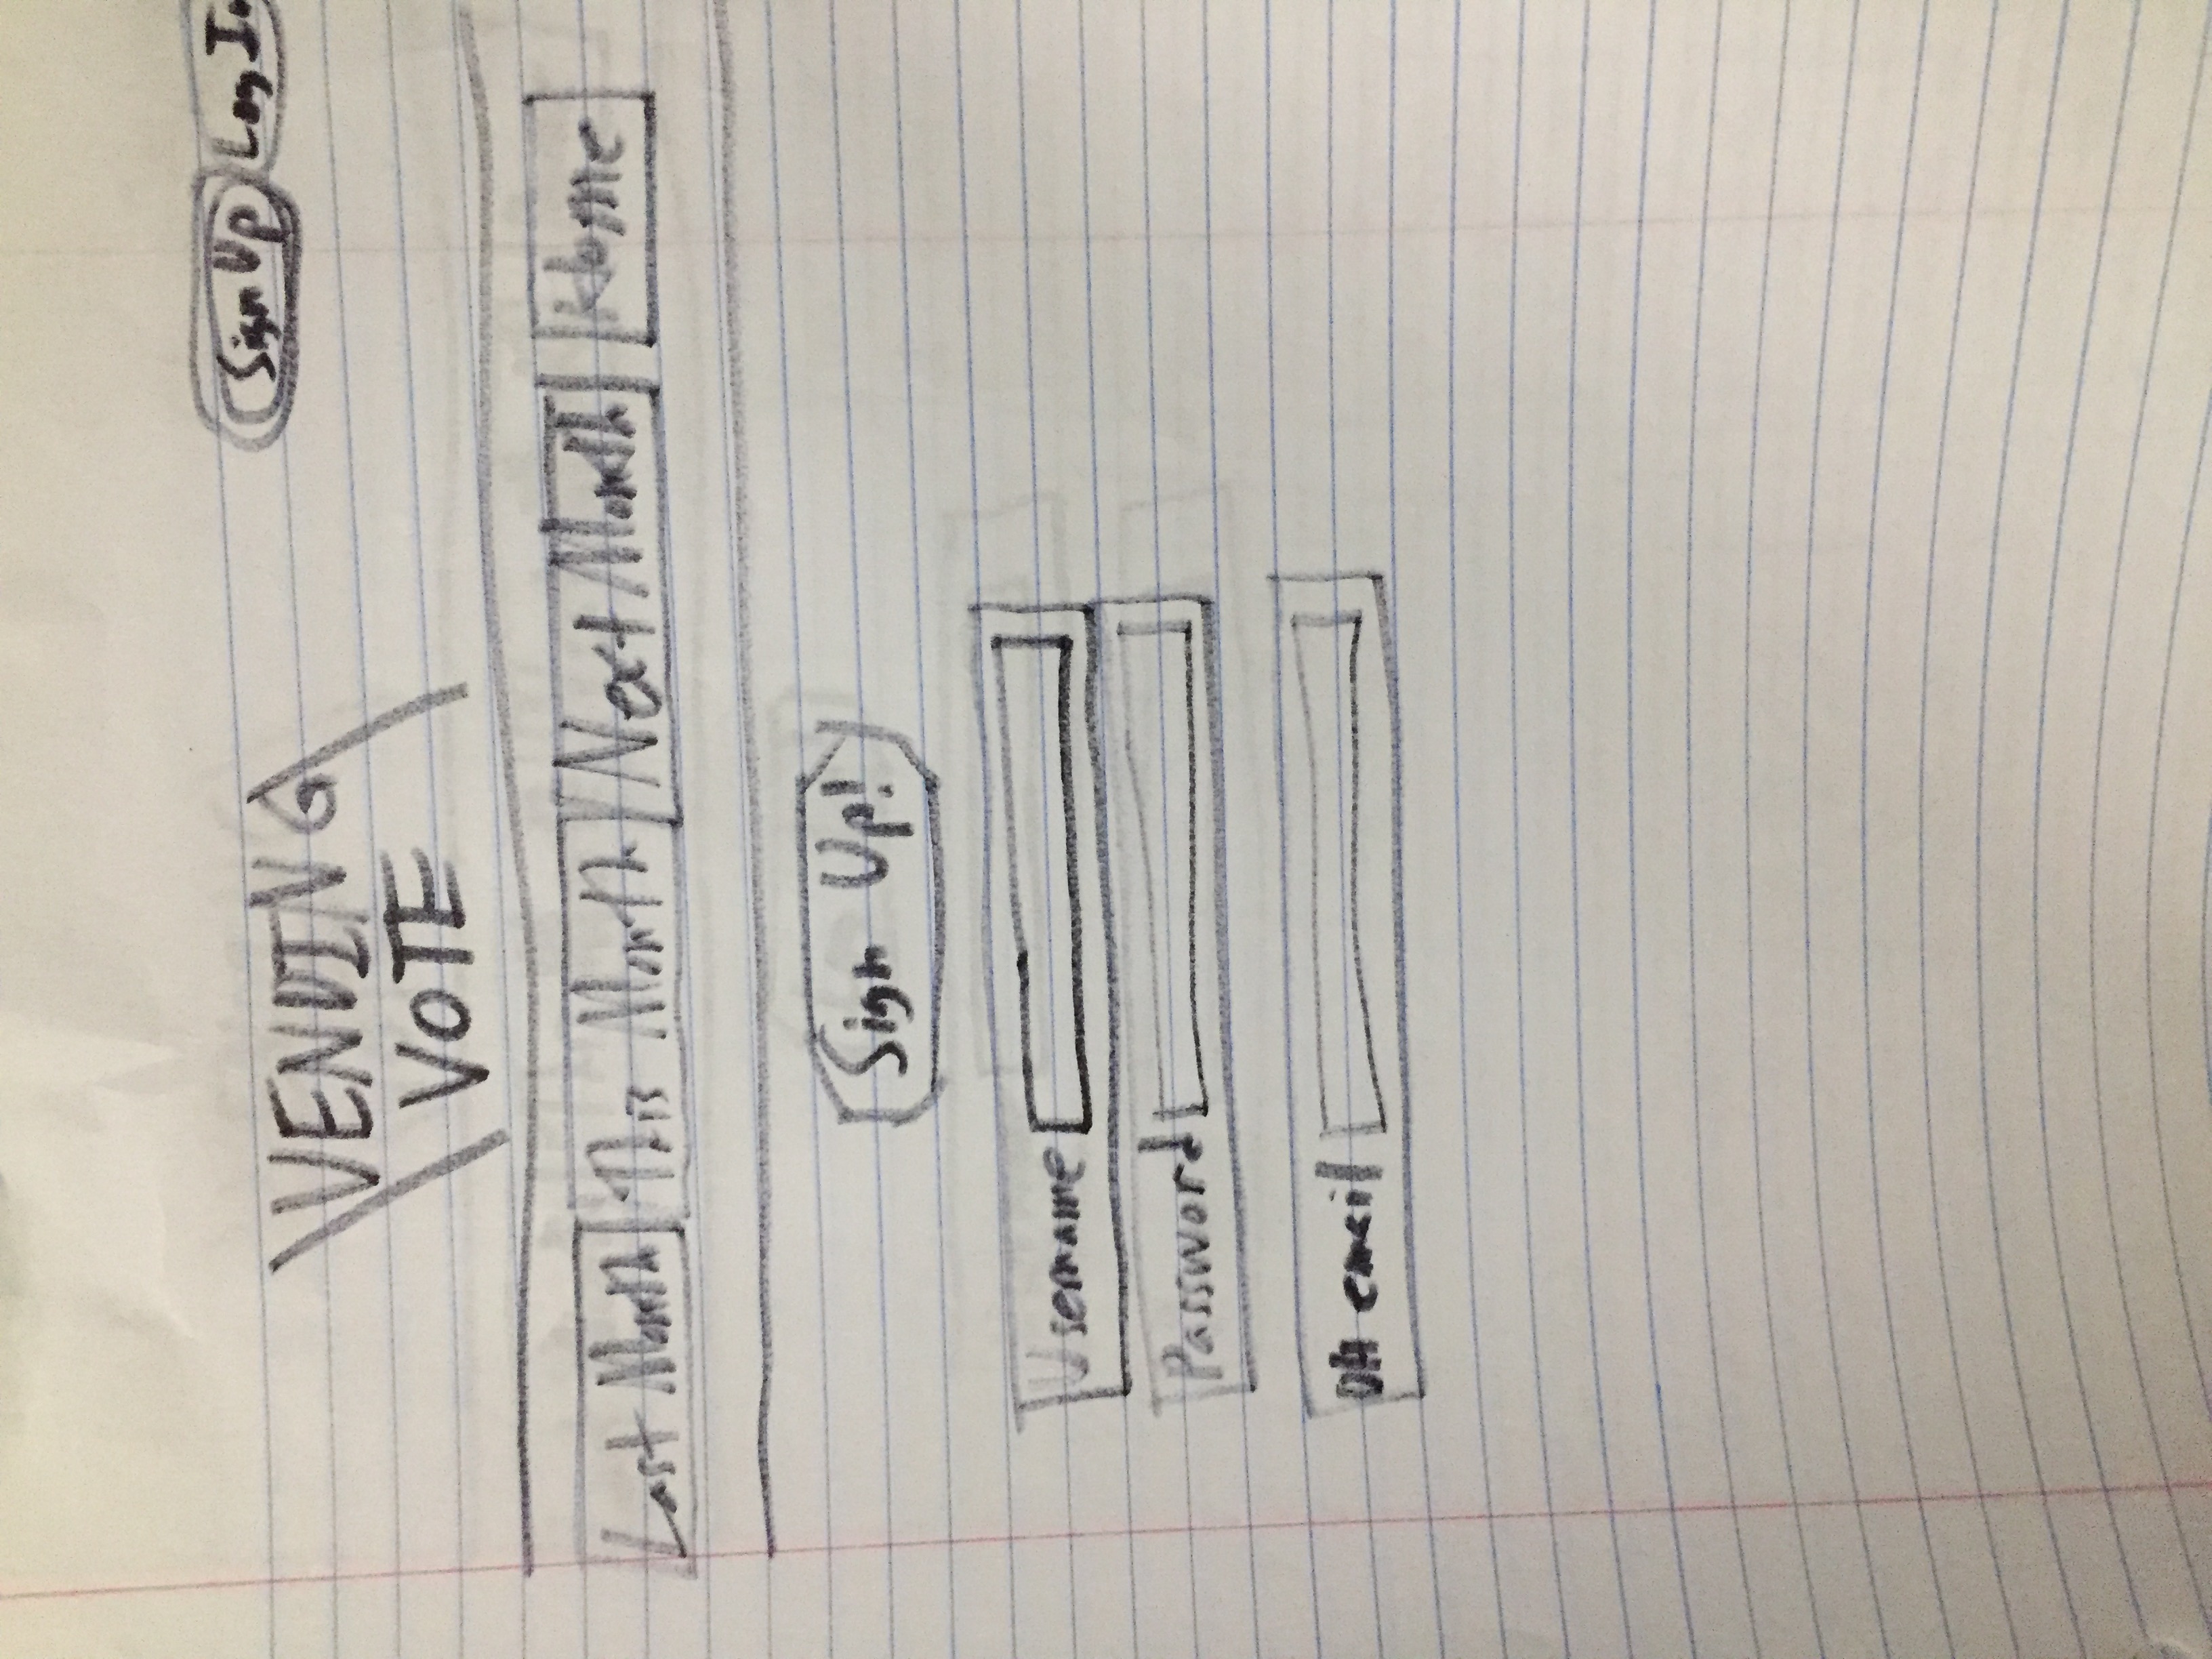 Sign Up Log In
VENDING
VOTE
Last Month This Month Next Month Home
Sign Up!
Username
Password
DH email